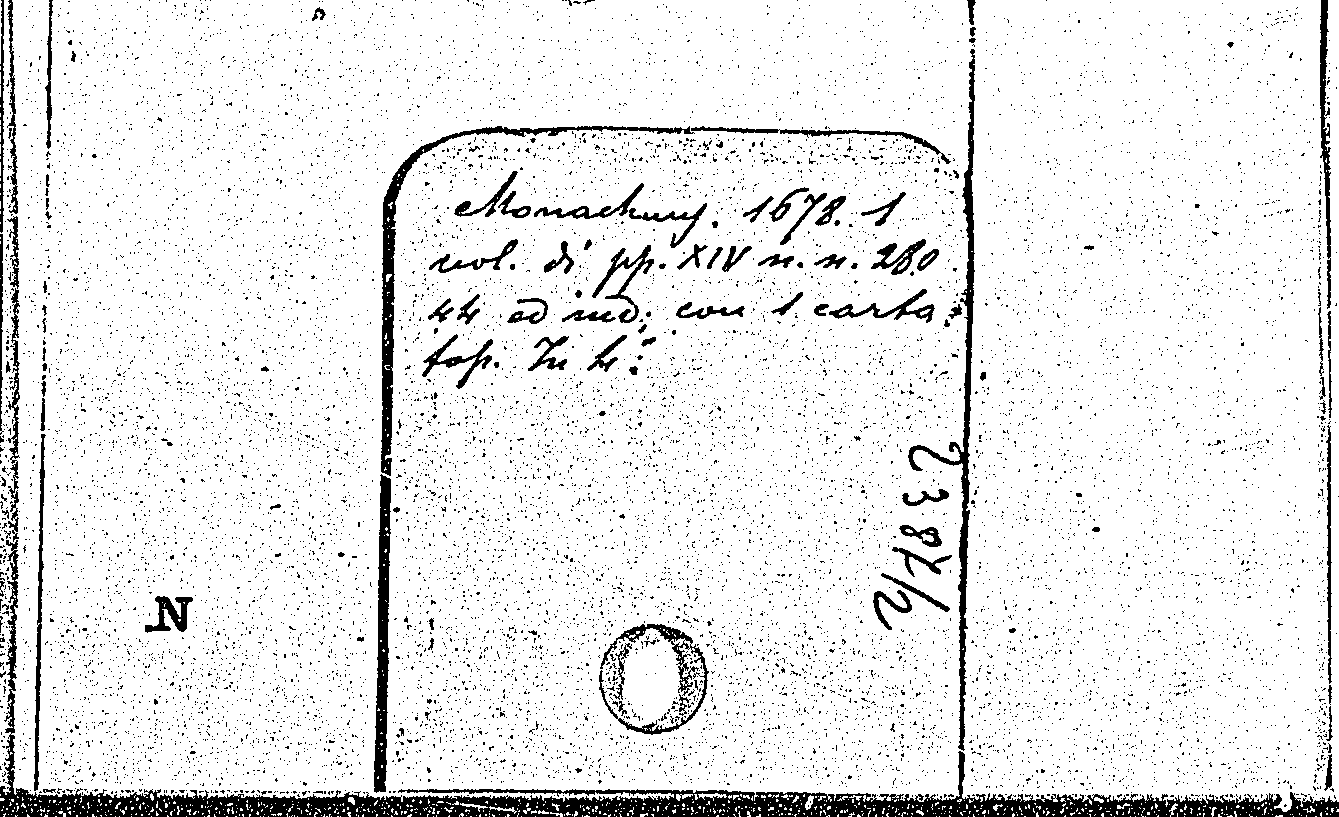 Monachuy. 1678. 1
vol. di pp. XIV n. n. 280
44 ed ind; con 1 carta
top. In 4:°
N